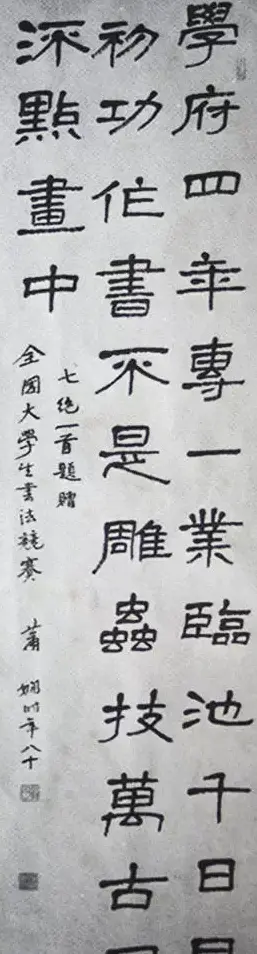 學府四年專一業臨池千日
初功作書不是雕蟲技萬古
流點畫中
七絕一首題贈
全國大學生書法競賽 蕭嫻時年八十